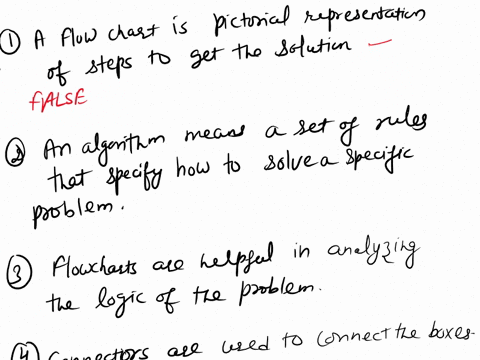 ① A flow chart is pictorial representation
of steps to get the solution —
FALSE
② An algorithm means a set of rules
that specify how to solve a specific
problem.
③ Flowcharts are helpful in analyzing
the logic of the problem.
④ Connectors are used to connect the boxes.